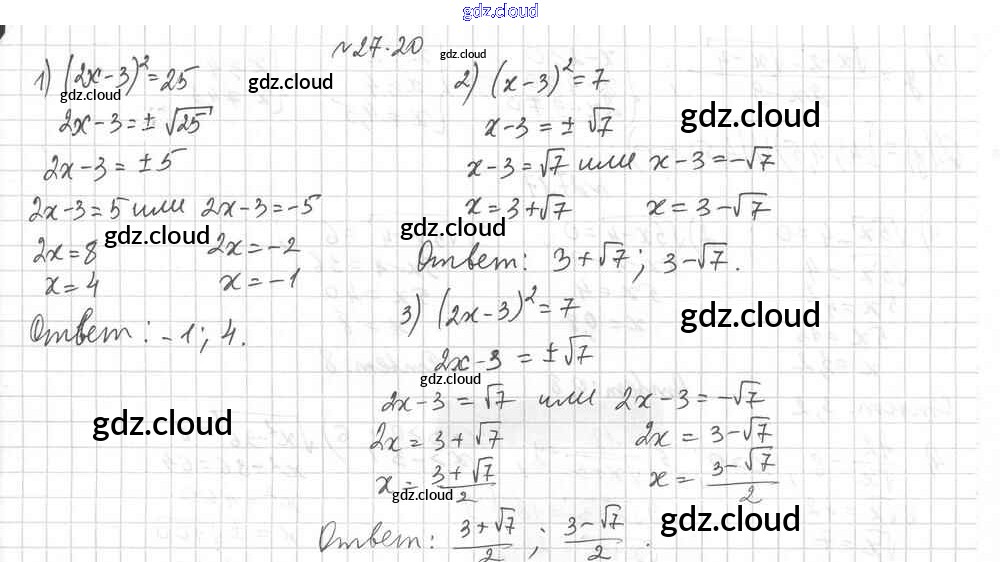 gdz.cloud
№27.20
1) (2x-3)²=25
2x-3=±√25
2x-3=±5
2x-3=5 или 2x-3=-5
2x=8 2x=-2
x=4 x=-1
Ответ: -1; 4.
2) (x-3)²=7
x-3=±√7
x-3=√7 или x-3=-√7
x=3+√7 x=3-√7
Ответ: 3+√7; 3-√7.
3) (2x-3)²=7
2x-3=±√7
2x-3=√7 или 2x-3=-√7
2x=3+√7 2x=3-√7
x=(3+√7)/2 x=(3-√7)/2
Ответ: (3+√7)/2; (3-√7)/2.
gdz.cloud
gdz.cloud
gdz.cloud
gdz.cloud
gdz.cloud
gdz.cloud
gdz.cloud
gdz.cloud
gdz.cloud
gdz.cloud
gdz.cloud